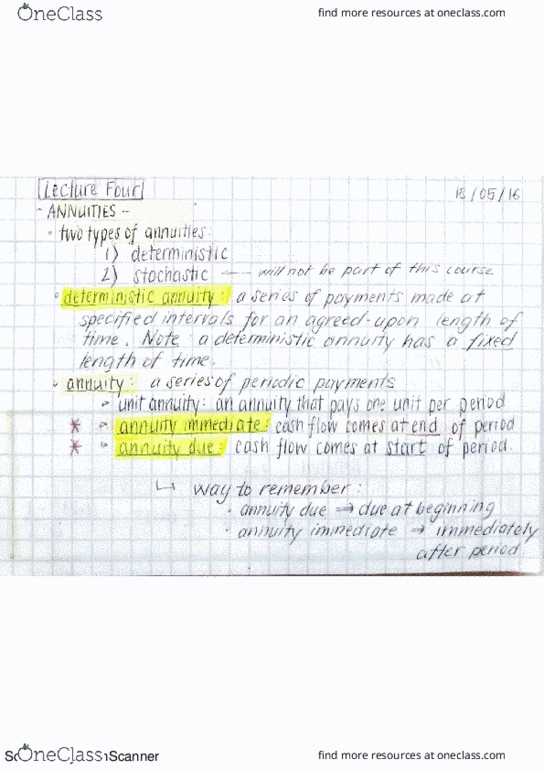 OneClass
find more resources at oneclass.com
Lecture Four
18/05/16
- ANNUITIES -
• two types of annuities:
1) deterministic
2) stochastic — will not be part of this course
• deterministic annuity: a series of payments made at
specified intervals for an agreed-upon length of
time. Note: a deterministic annuity has a fixed
length of time.
• annuity: a series of periodic payments
➢ unit annuity: an annuity that pays one unit per period
* ➢ annuity immediate: cash flow comes at end of period
* ➢ annuity due: cash flow comes at start of period.
↳ way to remember:
• annuity due → due at beginning
• annuity immediate → immediately
after period
OneClass
Scanner
find more resources at oneclass.com